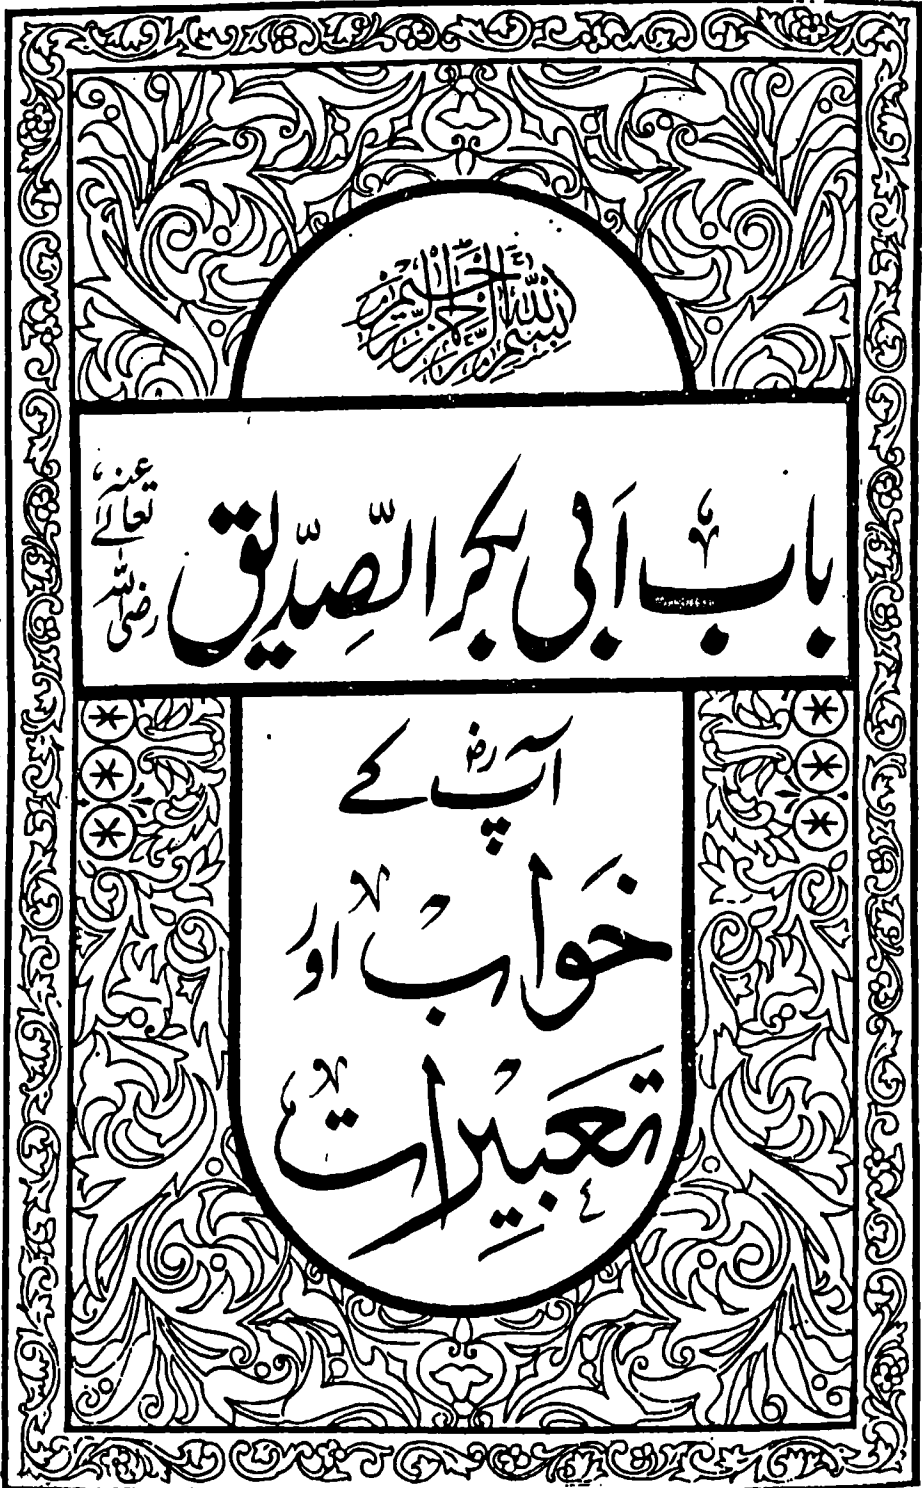 بسم الله الرحمن الرحيم
باب ابی بکر الصّدیق رضی اللہ تعالےٰ عنہ
آپؓ کے
خواب اور
تعبیرات